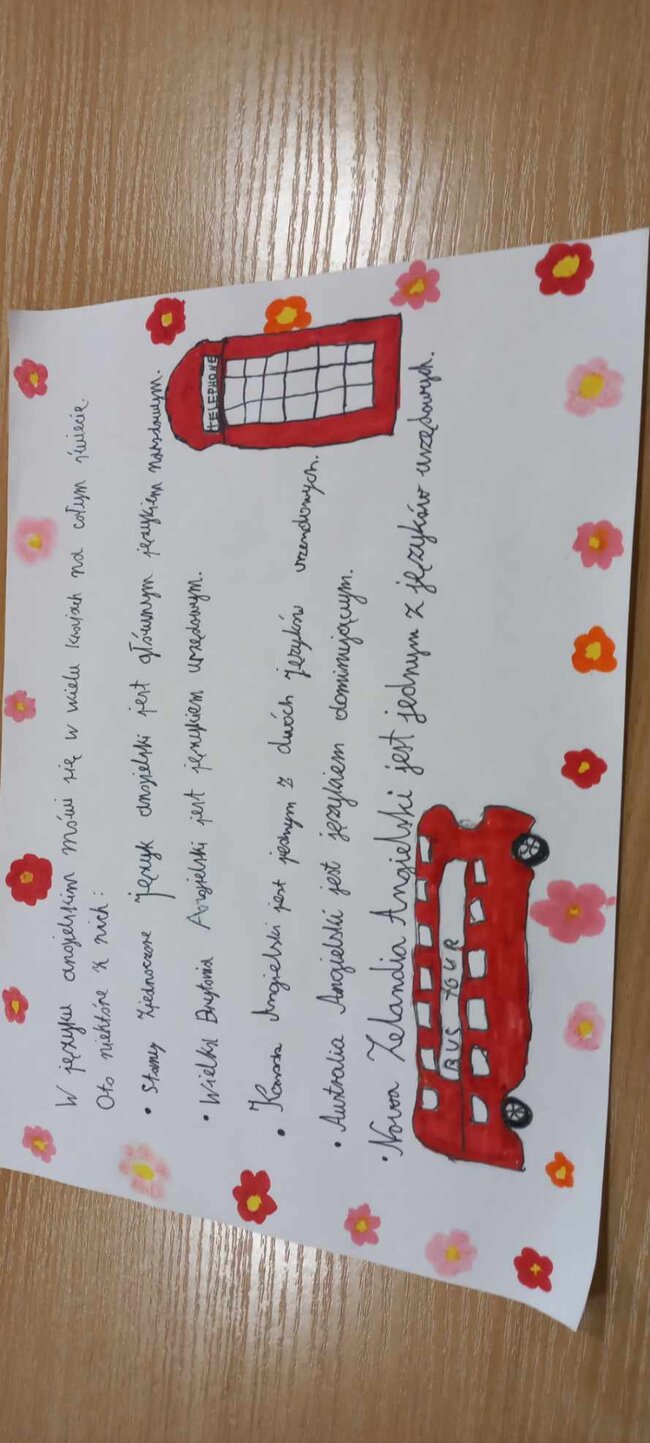 W języku angielskim mówi się w wielu krajach na całym świecie.
Oto niektóre z nich:
• Stany Zjednoczone język angielski jest głównym językiem narodowym.
• Wielka Brytania Angielski jest językiem urzędowym.
• Kanada Angielski jest jednym z dwóch języków urzendowych.
• Australia Angielski jest językiem dominującym.
• Nowa Zelandia Angielski jest jednym z języków urzędowych.
TELEPHONE
BUS TOUR